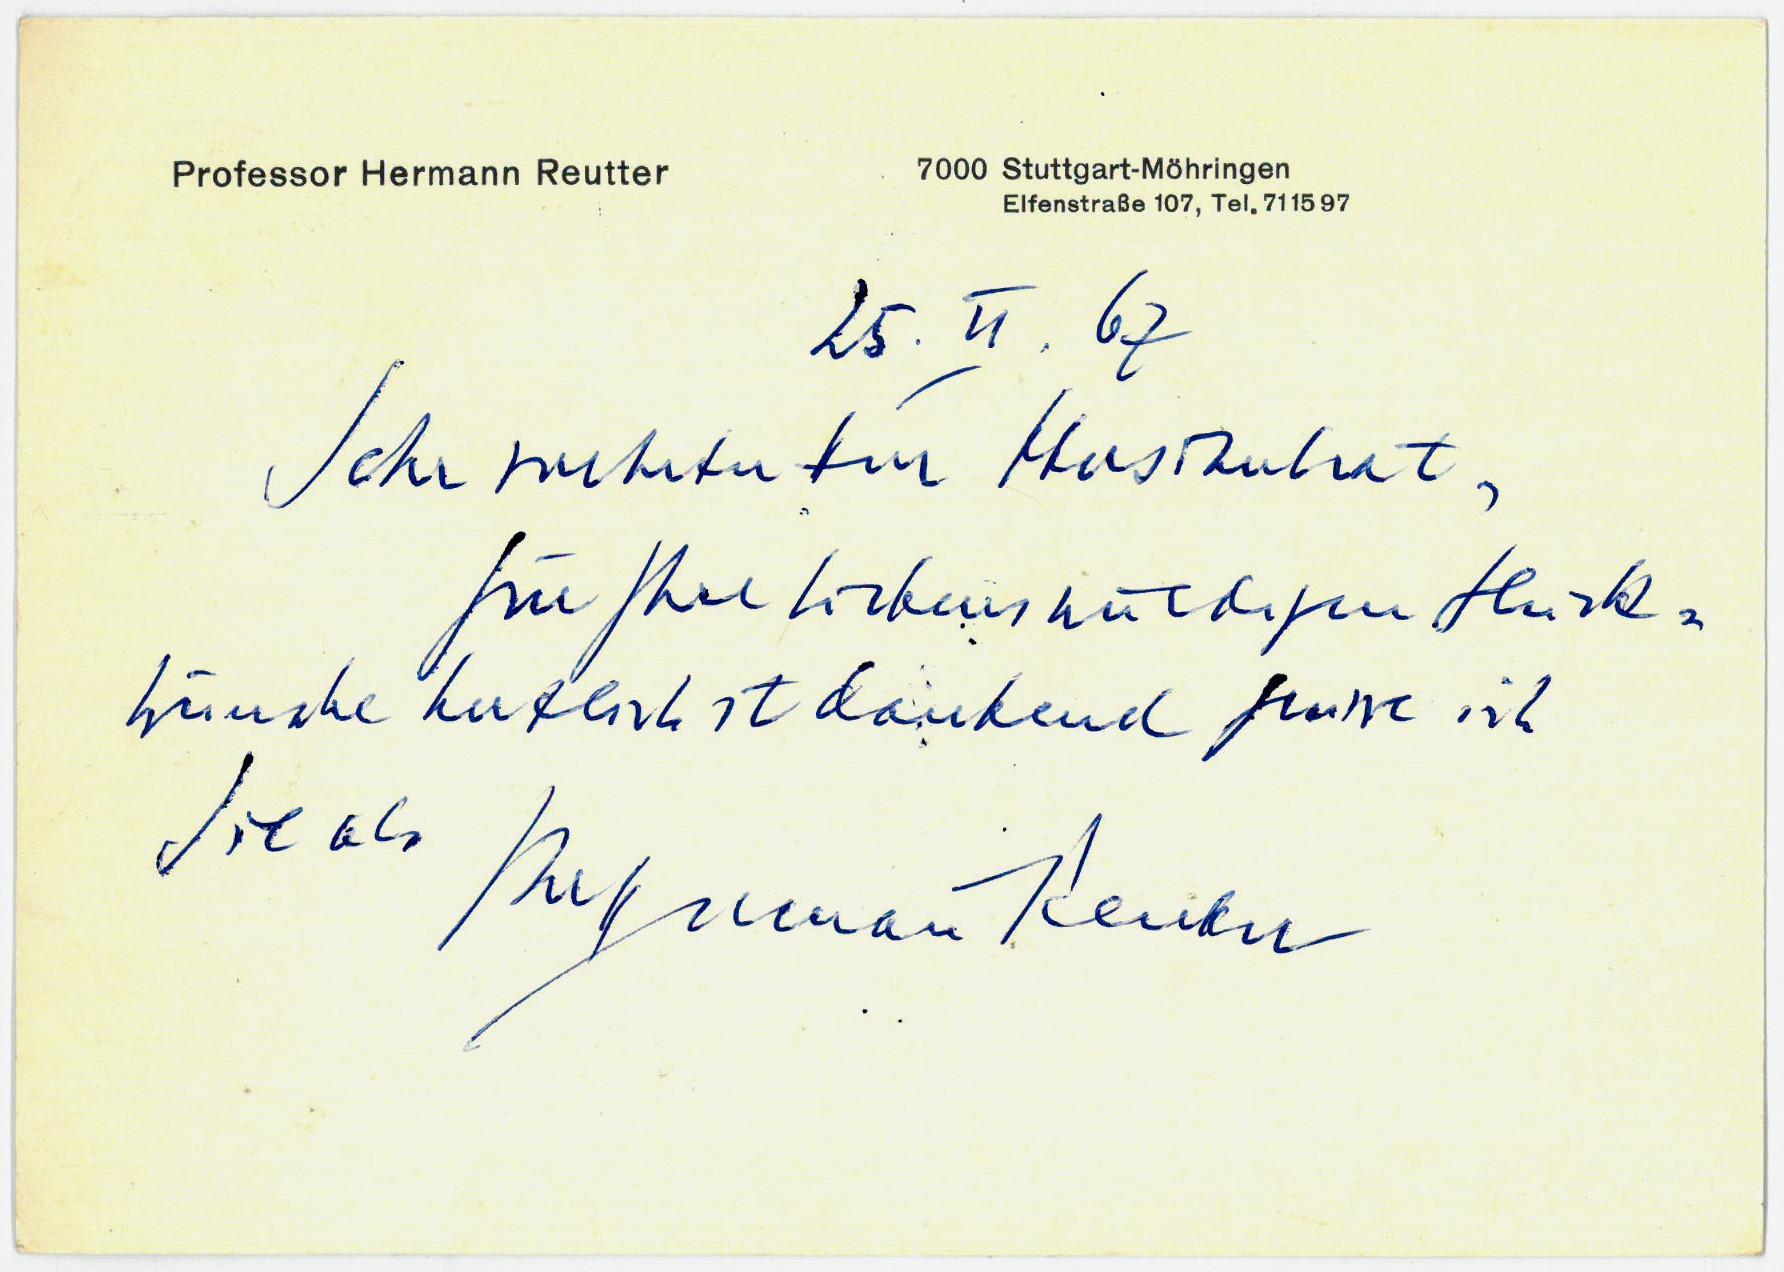 Professor Hermann Reutter
7000 Stuttgart-Möhringen
Elfenstraße 107, Tel. 711597
25. II. 67
Sehr verehrter Herr Musikdirektor,
für Ihre liebenswürdigen Glück=
wünsche herzlichst dankend grüsse ich
Sie als
Ihr Hermann Reutter